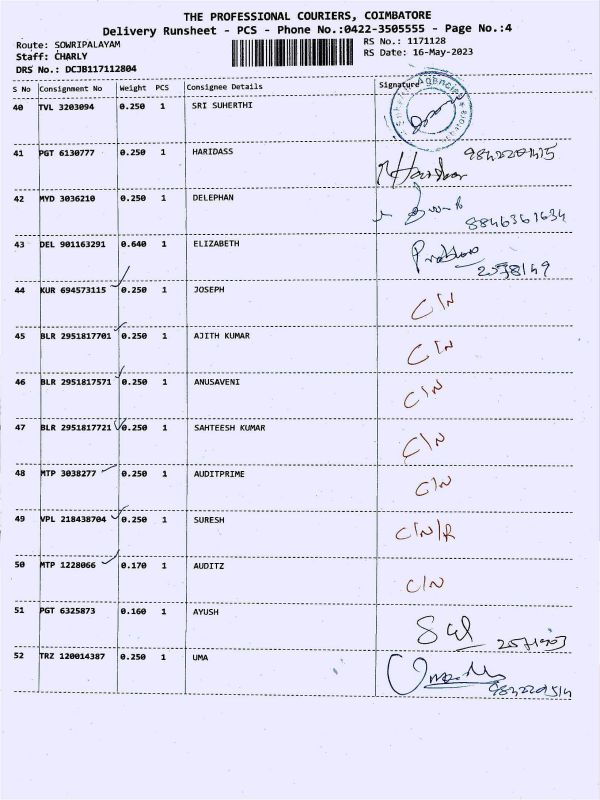 THE PROFESSIONAL COURIERS, COIMBATORE
Delivery Runsheet - PCS - Phone No.:0422-3505555 - Page No.:4
Route: SOWRIPALAYAM RS No.: 1171128
Staff: CHARLY RS Date: 16-May-2023
DRS No.: DCJB117112804
S No Consignment No Weight PCS Consignee Details Signature
40 TVL 3203094 0.250 1 SRI SUHERTHI
41 PGT 6130777 0.250 1 HARIDASS
42 MYD 3036210 0.250 1 DELEPHAN 8846361634
43 DEL 901163291 0.640 1 ELIZABETH
44 KUR 694573115 0.250 1 JOSEPH C/N
45 BLR 2951817701 0.250 1 AJITH KUMAR C/N
46 BLR 2951817571 0.250 1 ANUSAVENI C/N
47 BLR 2951817721 0.250 1 SAHTEESH KUMAR C/N
48 MTP 3038277 0.250 1 AUDITPRIME C/N
49 VPL 218438704 0.250 1 SURESH C/N/R
50 MTP 1228066 0.170 1 AUDITZ C/N
51 PGT 6325873 0.160 1 AYUSH
52 TRZ 120014387 0.250 1 UMA